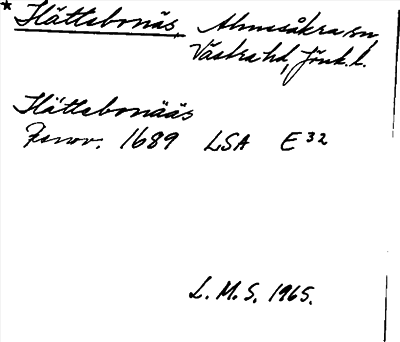 * Hättebonäs, Almesåkra sn
Västra hd, Jönk. l.
Hättebonääs
Renov. 1689 LSA E 32
L. M. S. 1965.